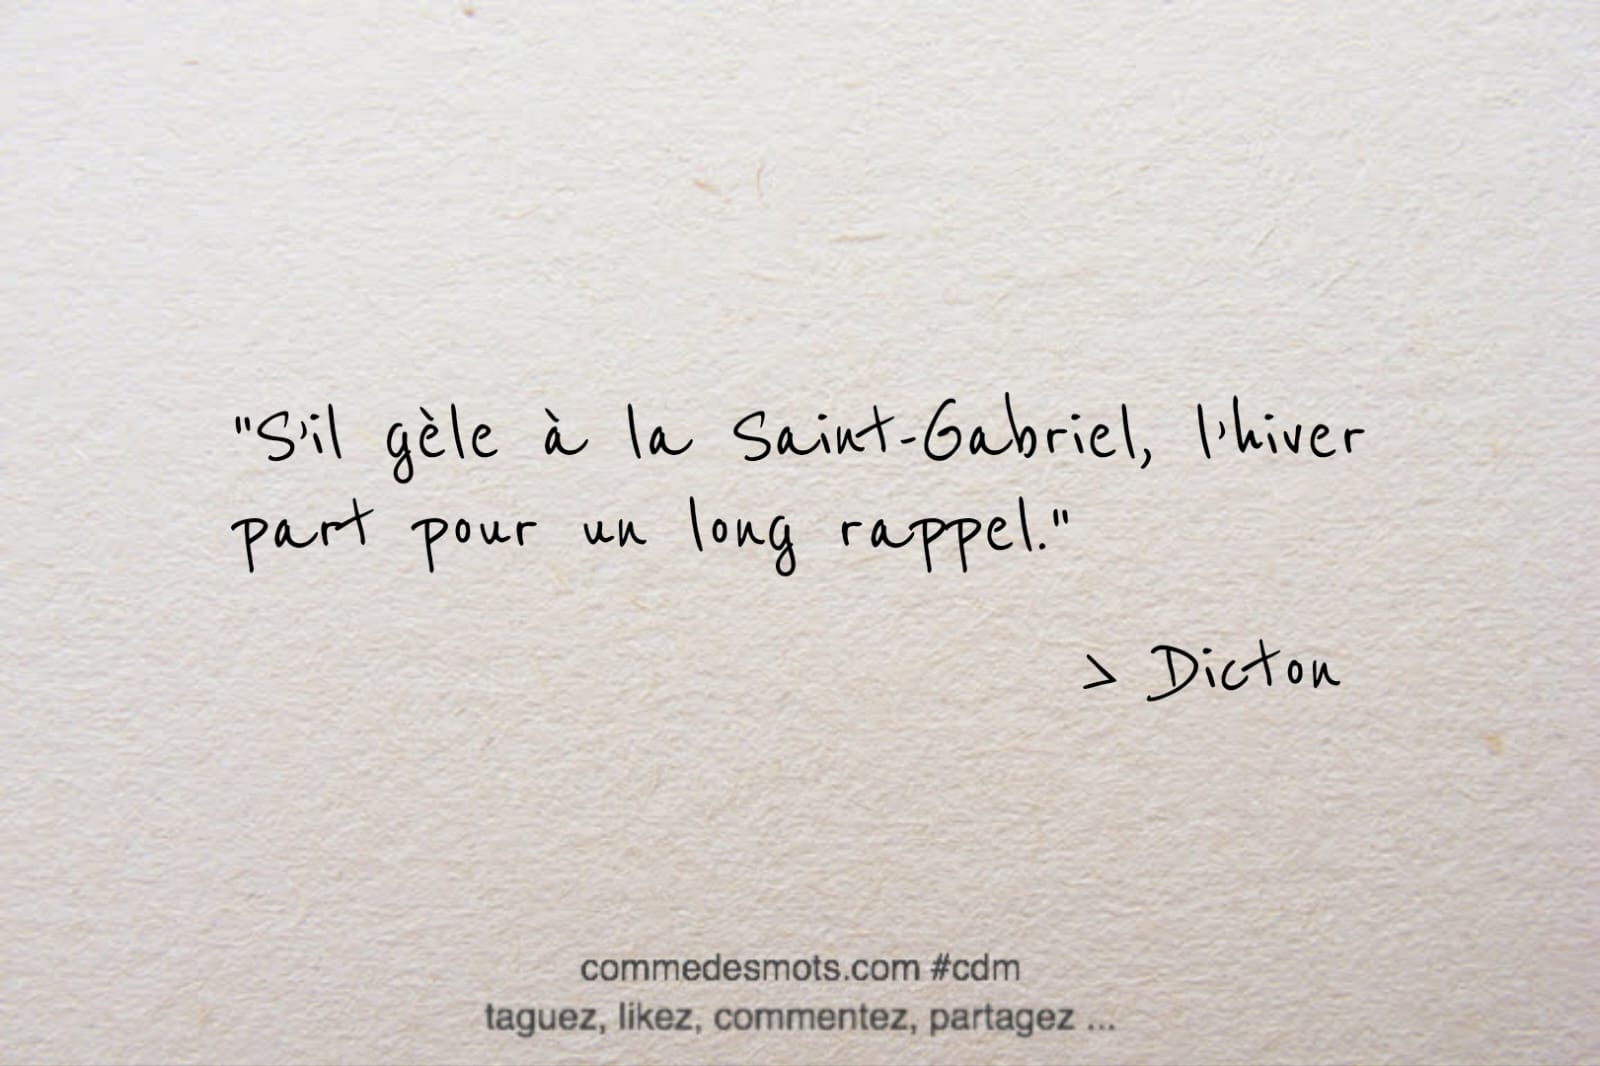 "S'il gèle à la Saint-Gabriel, l'hiver
part pour un long rappel."
> Dicton
commedesmots.com #cdm
taguez, likez, commentez, partagez ...